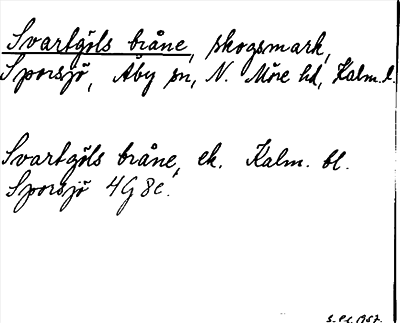 Svartgöls bråne, skogsmark,
Sporsjö, Åby sn, N. Möre hd, Kalm. l.
Svartgöls bråne, ek. Kalm. bl.
Sporsjö 4G 8c.